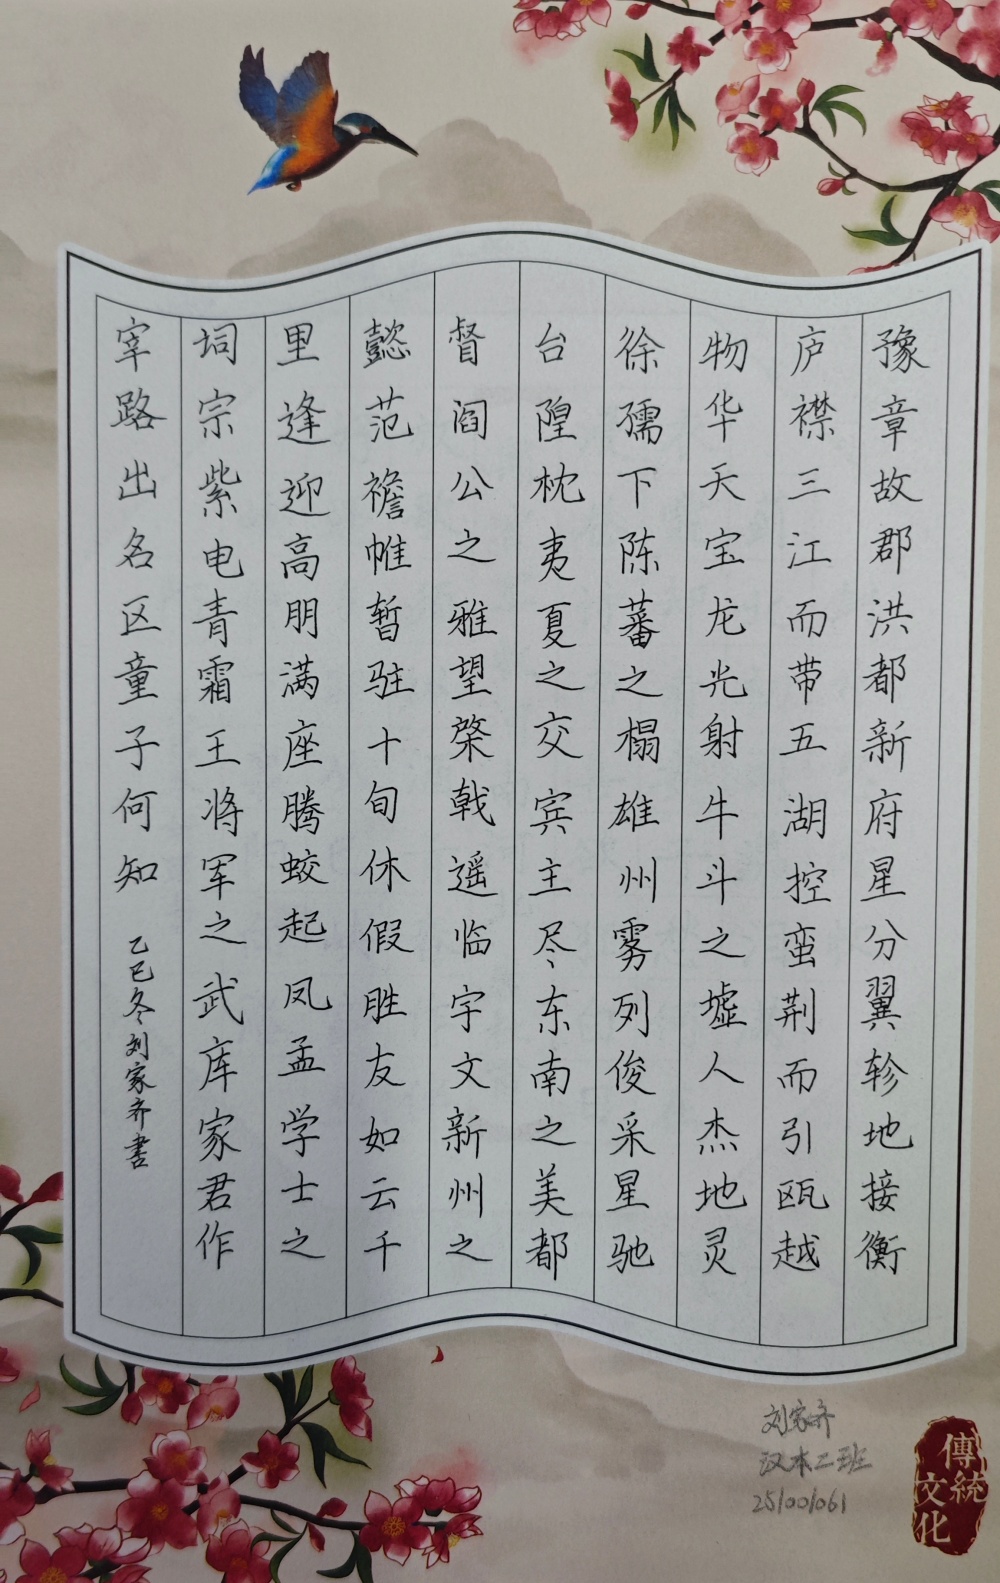 豫章故郡洪都新府星分翼轸地接衡
庐襟三江而带五湖控蛮荆而引瓯越
物华天宝龙光射牛斗之墟人杰地灵
徐孺下陈蕃之榻雄州雾列俊采星驰
台隍枕夷夏之交宾主尽东南之美都
督阎公之雅望棨戟遥临宇文新州之
懿范襜帷暂驻十旬休假胜友如云千
里逢迎高朋满座腾蛟起凤孟学士之
词宗紫电青霜王将军之武库家君作
宰路出名区童子何知
乙巳冬刘家齐书
刘家齐
汉本二班
251001061
傳統
文化